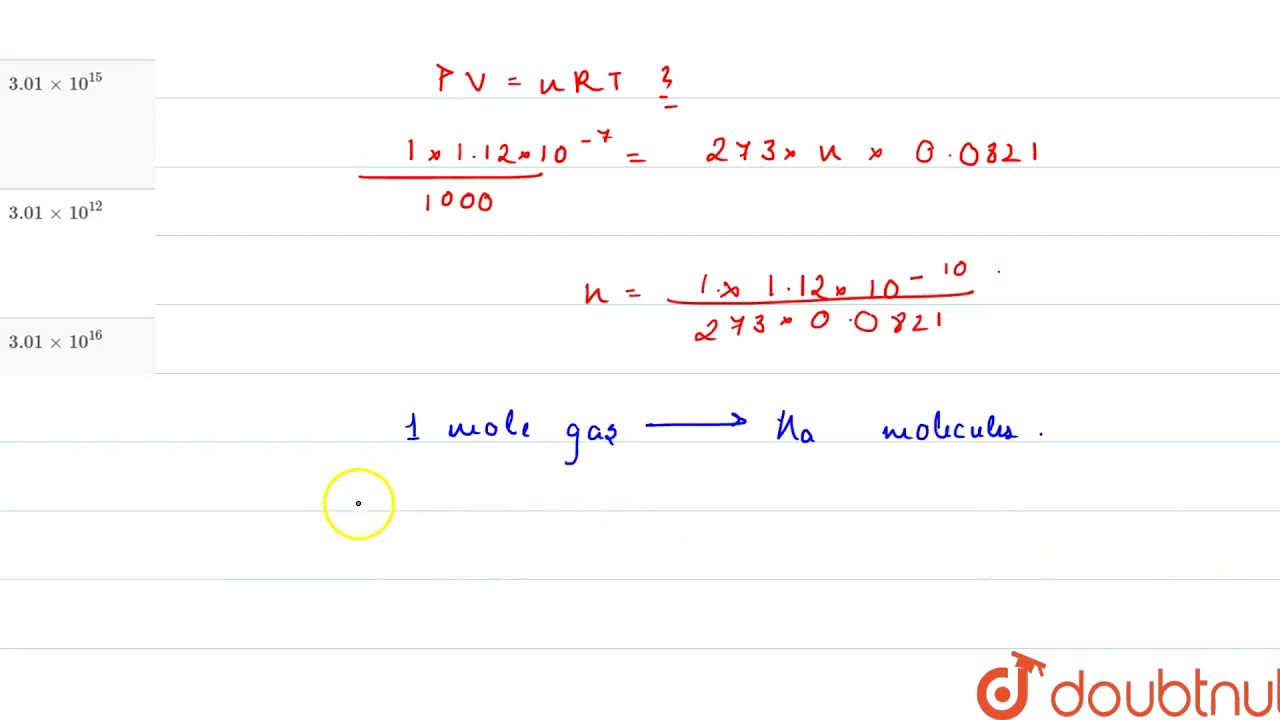 3.01 × 10^15
3.01 × 10^12
3.01 × 10^16
PV = nRT }
1 × 1.12 × 10^-7 = 273 × n × 0.0821
1000
n = 1 × 1.12 × 10^-10
273 × 0.0821
1 mole gas → Na molecules.
doubtnut